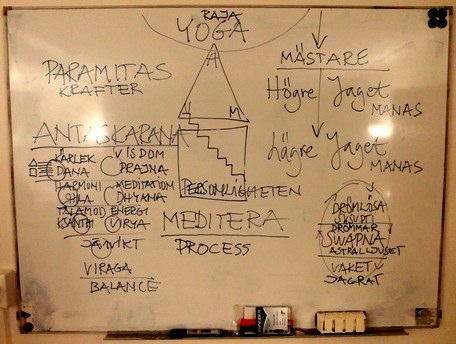 RAJA
YOGA
PARAMITAS
KRAFTER
ANTASKARANA
KÄRLEK
DANA
VISDOM
PRAJNA
HARMONI
SHILA
MEDITATION
DHYANA
TÅLAMOD
KSANTI
ENERGI
VIRYA
JÄMVIKT
VIRAGA
BALANCE
A
M
PERSONLIGHETEN
MEDITERA
PROCESS
MÄSTARE
Högre Jaget
MANAS
lägre Jaget
MANAS
DRÖMLÖSA
SUSUPTI
DRÖMMAR
SWAPNA
ASTRALLJUSET
VAKET
JAGRAT